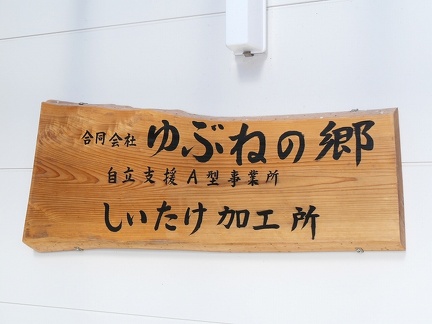 合同会社 ゆぶねの郷
自立支援A型事業所
しいたけ加工所